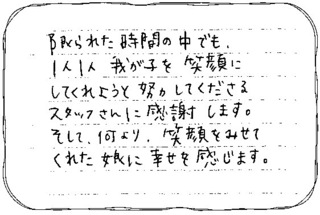 限られた時間の中でも、
1人1人 我が子を 笑顔に
してくれようと 努力してくださる
スタッフさんに 感謝します。
そして、何より、笑顔をみせて
くれた 娘に 幸せを 感じます。